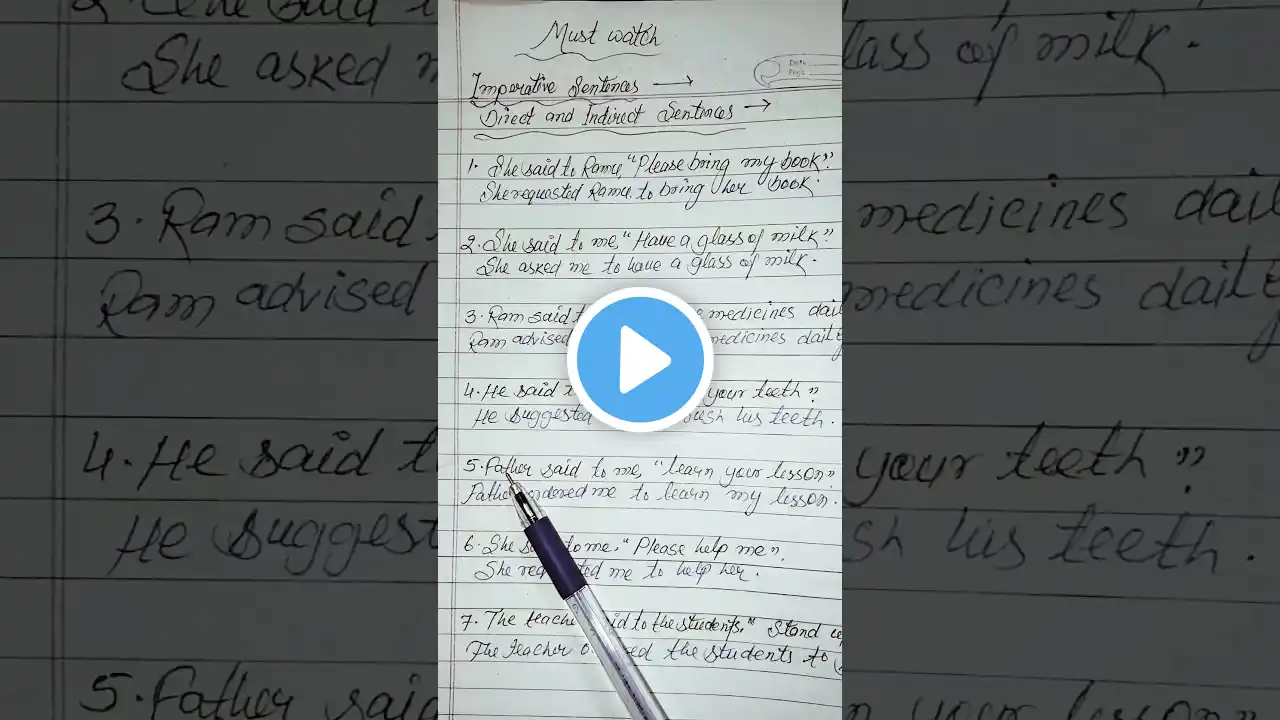 Must watch
Date
Page
Imperative Sentences →
Direct and Indirect Sentences →
1. She said to Ramu, "Please bring my book".
She requested Ramu to bring her book.
2. She said to me, "Have a glass of milk".
She asked me to have a glass of milk.
3. Ram said medicines
Ram advised medicines
4. He said your teeth".
He suggested his teeth.
5. Father said to me, "learn your lesson".
me to learn my lesson.
6. She "Please help me".
She me to help her.
7. The to the students, " Stand
The teacher the students to